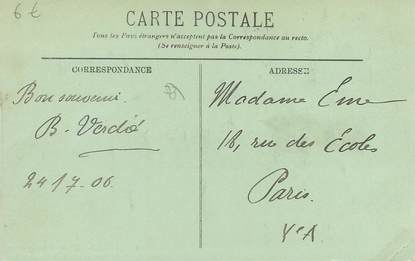 6 €
CARTE POSTALE
Tous les Pays étrangers n'acceptent pas la Correspondance au recto.
(Se renseigner à la Poste).
CORRESPONDANCE
Bon souvenir.
B. Verdié
24 17. 06.
ADRESSE
Madame Eme
18, rue des Écoles
Paris.
Ve A